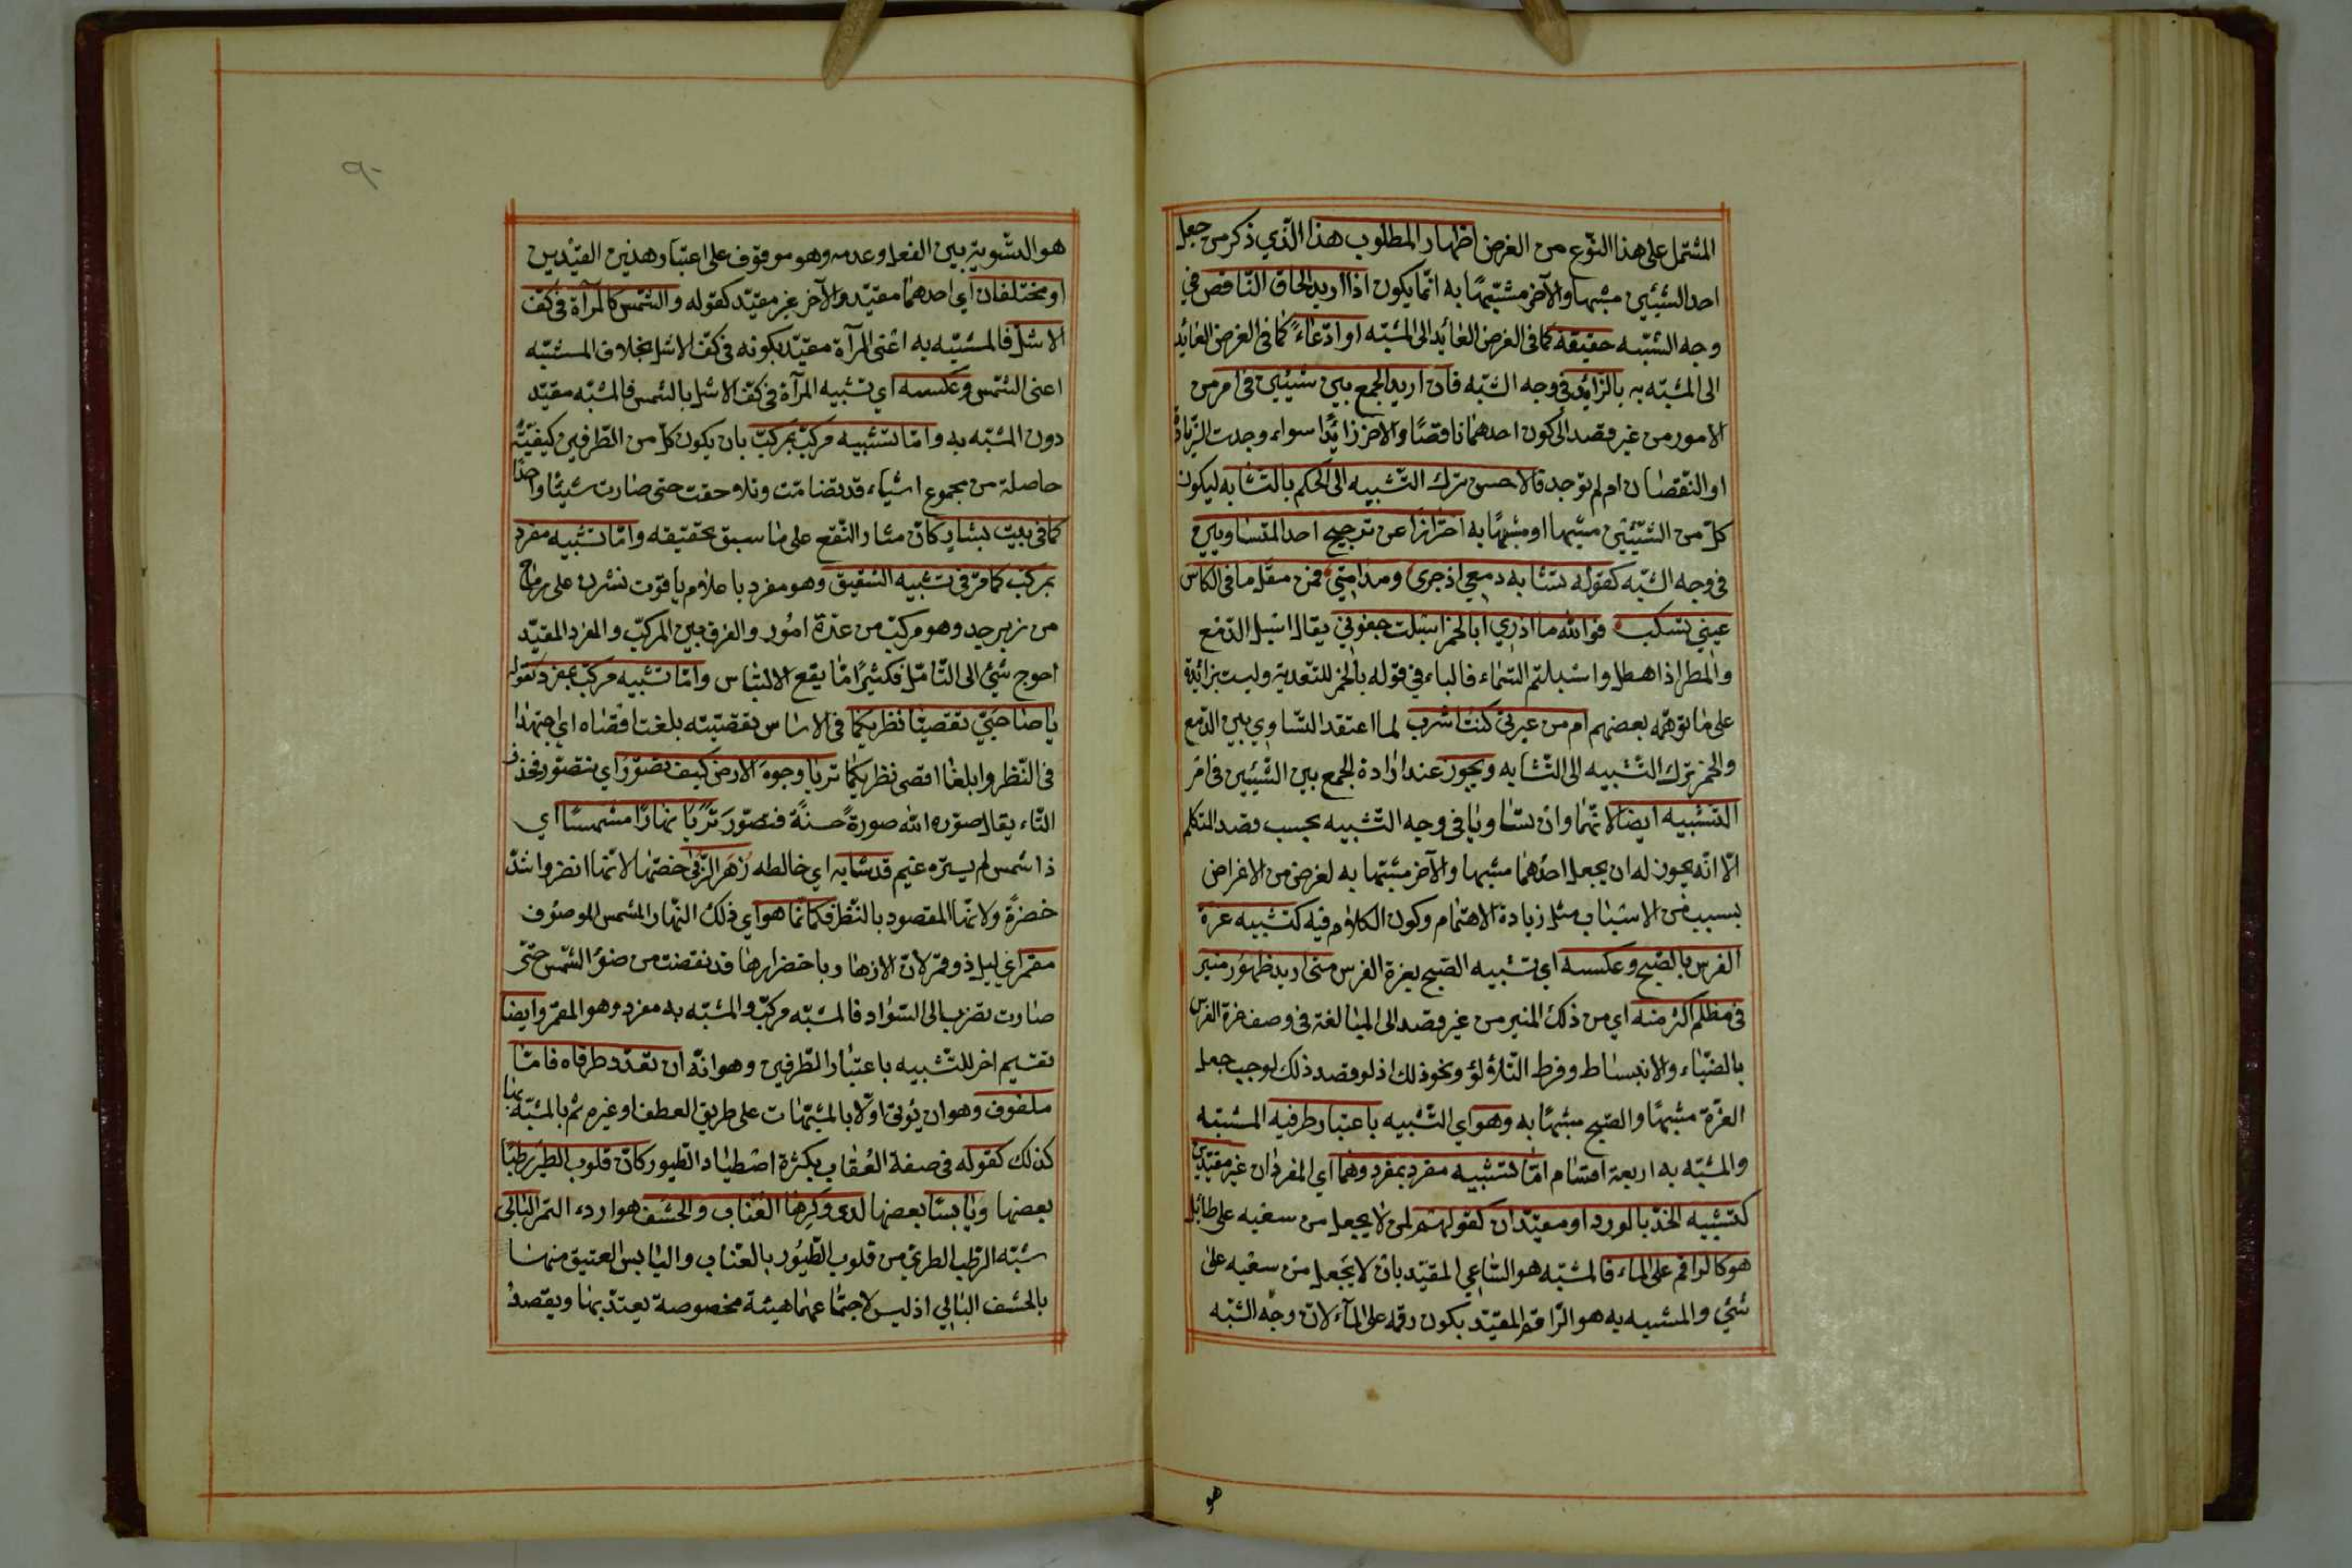 المشتمل على هذا النّوع من الغرض اظهار المطلوب هذا الّذي ذكر من جعل
احد الشيئين مشبها والآخر مشبّهًا به انّما يكون اذا اريد الحاق النّاقص في
وجه الشّبه حقيقة كما فى الغرض العائد الى المشبّه او ادّعاءً كما فى الغرض العائد
الى المشبّه به بالزّايد فى وجه الشّبه فان اريد الجمع بين شيئين فى امر من
الامور من غير قصد الى كون احدهما ناقصًا والاخر زائدًا سواء وجدت الزّيادة
او النّقصان ام لم توجد فالاحسن ترك التّشبيه الى الحكم بالتّشابه ليكون
كلّ من الشّيئين مشبها او مشبهًا به احترازًا عن ترجيح احد المتساويين
فى وجه الشّبه كقوله تشابه دمعي اذ جرى ومدامتي فمن مثل ما فى الكاس
عيني تسكب فوالله ما ادري ابالخمر اسبلت جفوني يقال اسبل الدّمع
والمطر اذا هطل واسبلت السّماء فالباء في قوله بالخمر للتّعدية وليست بزائدة
على ما توهّمه بعضهم ام من عبرتي كنت اشرب لما اعتقد التّساوي بين الدّمع
والخمر ترك التّشبيه الى التّشابه ويجوز عند ارادة الجمع بين الشّيئين فى امر
التّشبيه ايضا لانّهما وان تساويا فى وجه التّشبيه بحسب قصد المتكلم
الّا انّه يجوز له ان يجعل احدهما مشبها والآخر مشبّها به لغرض من الاغراض
بسبب من الاسباب مثل زيادة الاهتمام وكون الكلام فيه كتشبيه غرة
الفرس بالصّبح وعكسه اي تشبيه الصّبح بغرة الفرس متى اريد ظهور منير
فى مظلم اكثر منه اي من ذلك المنير من غير قصد الى المبالغة فى وصف غرة الفرس
بالضّياء والانبساط وفرط التّلاؤلؤ ونحو ذلك اذ لو قصد ذلك لوجب جعل
الغرّة مشبهًا والصّبح مشبهًا به وهو اي التّشبيه باعتبار طرفيه المشبّه
والمشبّه به اربعة اقسام امّا تشبيه مفرد بمفرد وهما اي المفردان غير مقيّدين
كتشبيه الخدّ بالورد او مقيّدان كقولهم لمن لا يحصل من سعيه على طائل
هو كالراقم على الماء فالمشبّه هو السّاعي المقيّد بان لا يحصل من سعيه على
شئ والمشبه به هو الرّاقم المقيّد بكون رقمه على المآء لانّ وجه الشّبه
هو
٩٠
هو التّسوية بين الفعل وعدمه وهو موقوف على اعتبار هذين القيدين
او مختلفان اي احدهما مقيّد والآخر غير مقيّد كقوله والشّمس كالمرآة فى كفّ
الاشلّ فالمشبّه به اعنى المرآة مقيّد بكونه فى كفّ الاشل بخلاف المشبّه
اعنى الشّمس وعكسه اي تشبيه المرآة فى كفّ الاشل بالشّمس فالمشبّه مقيّد
دون المشبّه به وامّا تشبيه مركّب بمركّب بان يكون كلّ من الطّرفين كيفيّة
حاصلة من مجموع اشياء قد تضامّت وتلاحقت حتى صارت شيئًا واحدًا
كما فى بيت بشار كانّ مثار النّقع على ما سبق تحقيقه وامّا تشبيه مفرد
بمركّب كما مرّ فى تشبيه الشقيق وهو مفرد باعلام ياقوت نشرن على رماح
من زبرجد وهو مركّب من عدّة امور والفرق بين المركّب والمفرد المقيّد
احوج شئ الى التّامّل فكثيرًا ما يقع الالتباس وامّا تشبيه مركّب بمفرد كقوله
يا صاحبيّ تقصّيا نظريكما فى الاساس تقصّيته بلغت اقصاه اي اجتهدا
فى النّظر وابلغا اقصى نظريكما تريا وجوه الارض كيف تصوّر اي تتصوّر فحذف
التّاء يقال صوّره الله صورةً حسنةً فتصوّر تريا نهارًا مشمسًا اي
ذا شمس لم يستره غيم قد شابه اي خالطه زهر الرّبى خصّها لانّها انضر واشدّ
خضرةً ولانّها المقصود بالنّظر فكانّما هو اي ذلك النّهار المشمس الموصوف
مقمر اي ليل ذو قمر لانّ الازهار باخضرارها قد نقصت من ضوء الشّمس حتّى
صارت تضرب الى السّواد فالمشبّه مركّب والمشبّه به مفرد وهو المقمر وايضا
تقسيم اخر للتّشبيه باعتبار الطّرفين وهو انّه ان تعدّد طرفاه فامّا
ملفوف وهو ان يؤتى اوّلا بالمشبّهات على طريق العطف او غيره ثم بالمشبّه بها
كذلك كقوله فى صفة العقاب بكثرة اصطياد الطّيور كانّ قلوب الطّير رطبًا
بعضها ويابسًا بعضها لدى وكرها العنّاب والحشف هو اردء التّمر البالى
شبّه الرّطب الطريّ من قلوب الطّيور بالعنّاب واليابس العتيق منها
بالحشف البالي اذ ليس لاجتماعهما هيئة مخصوصة يعتدّ بها ويقصد